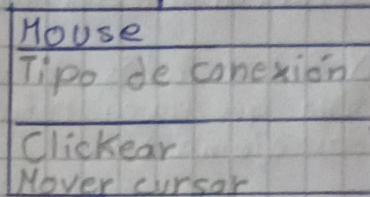 Mouse
Tipo de conexión
Clickear
Mover cursor